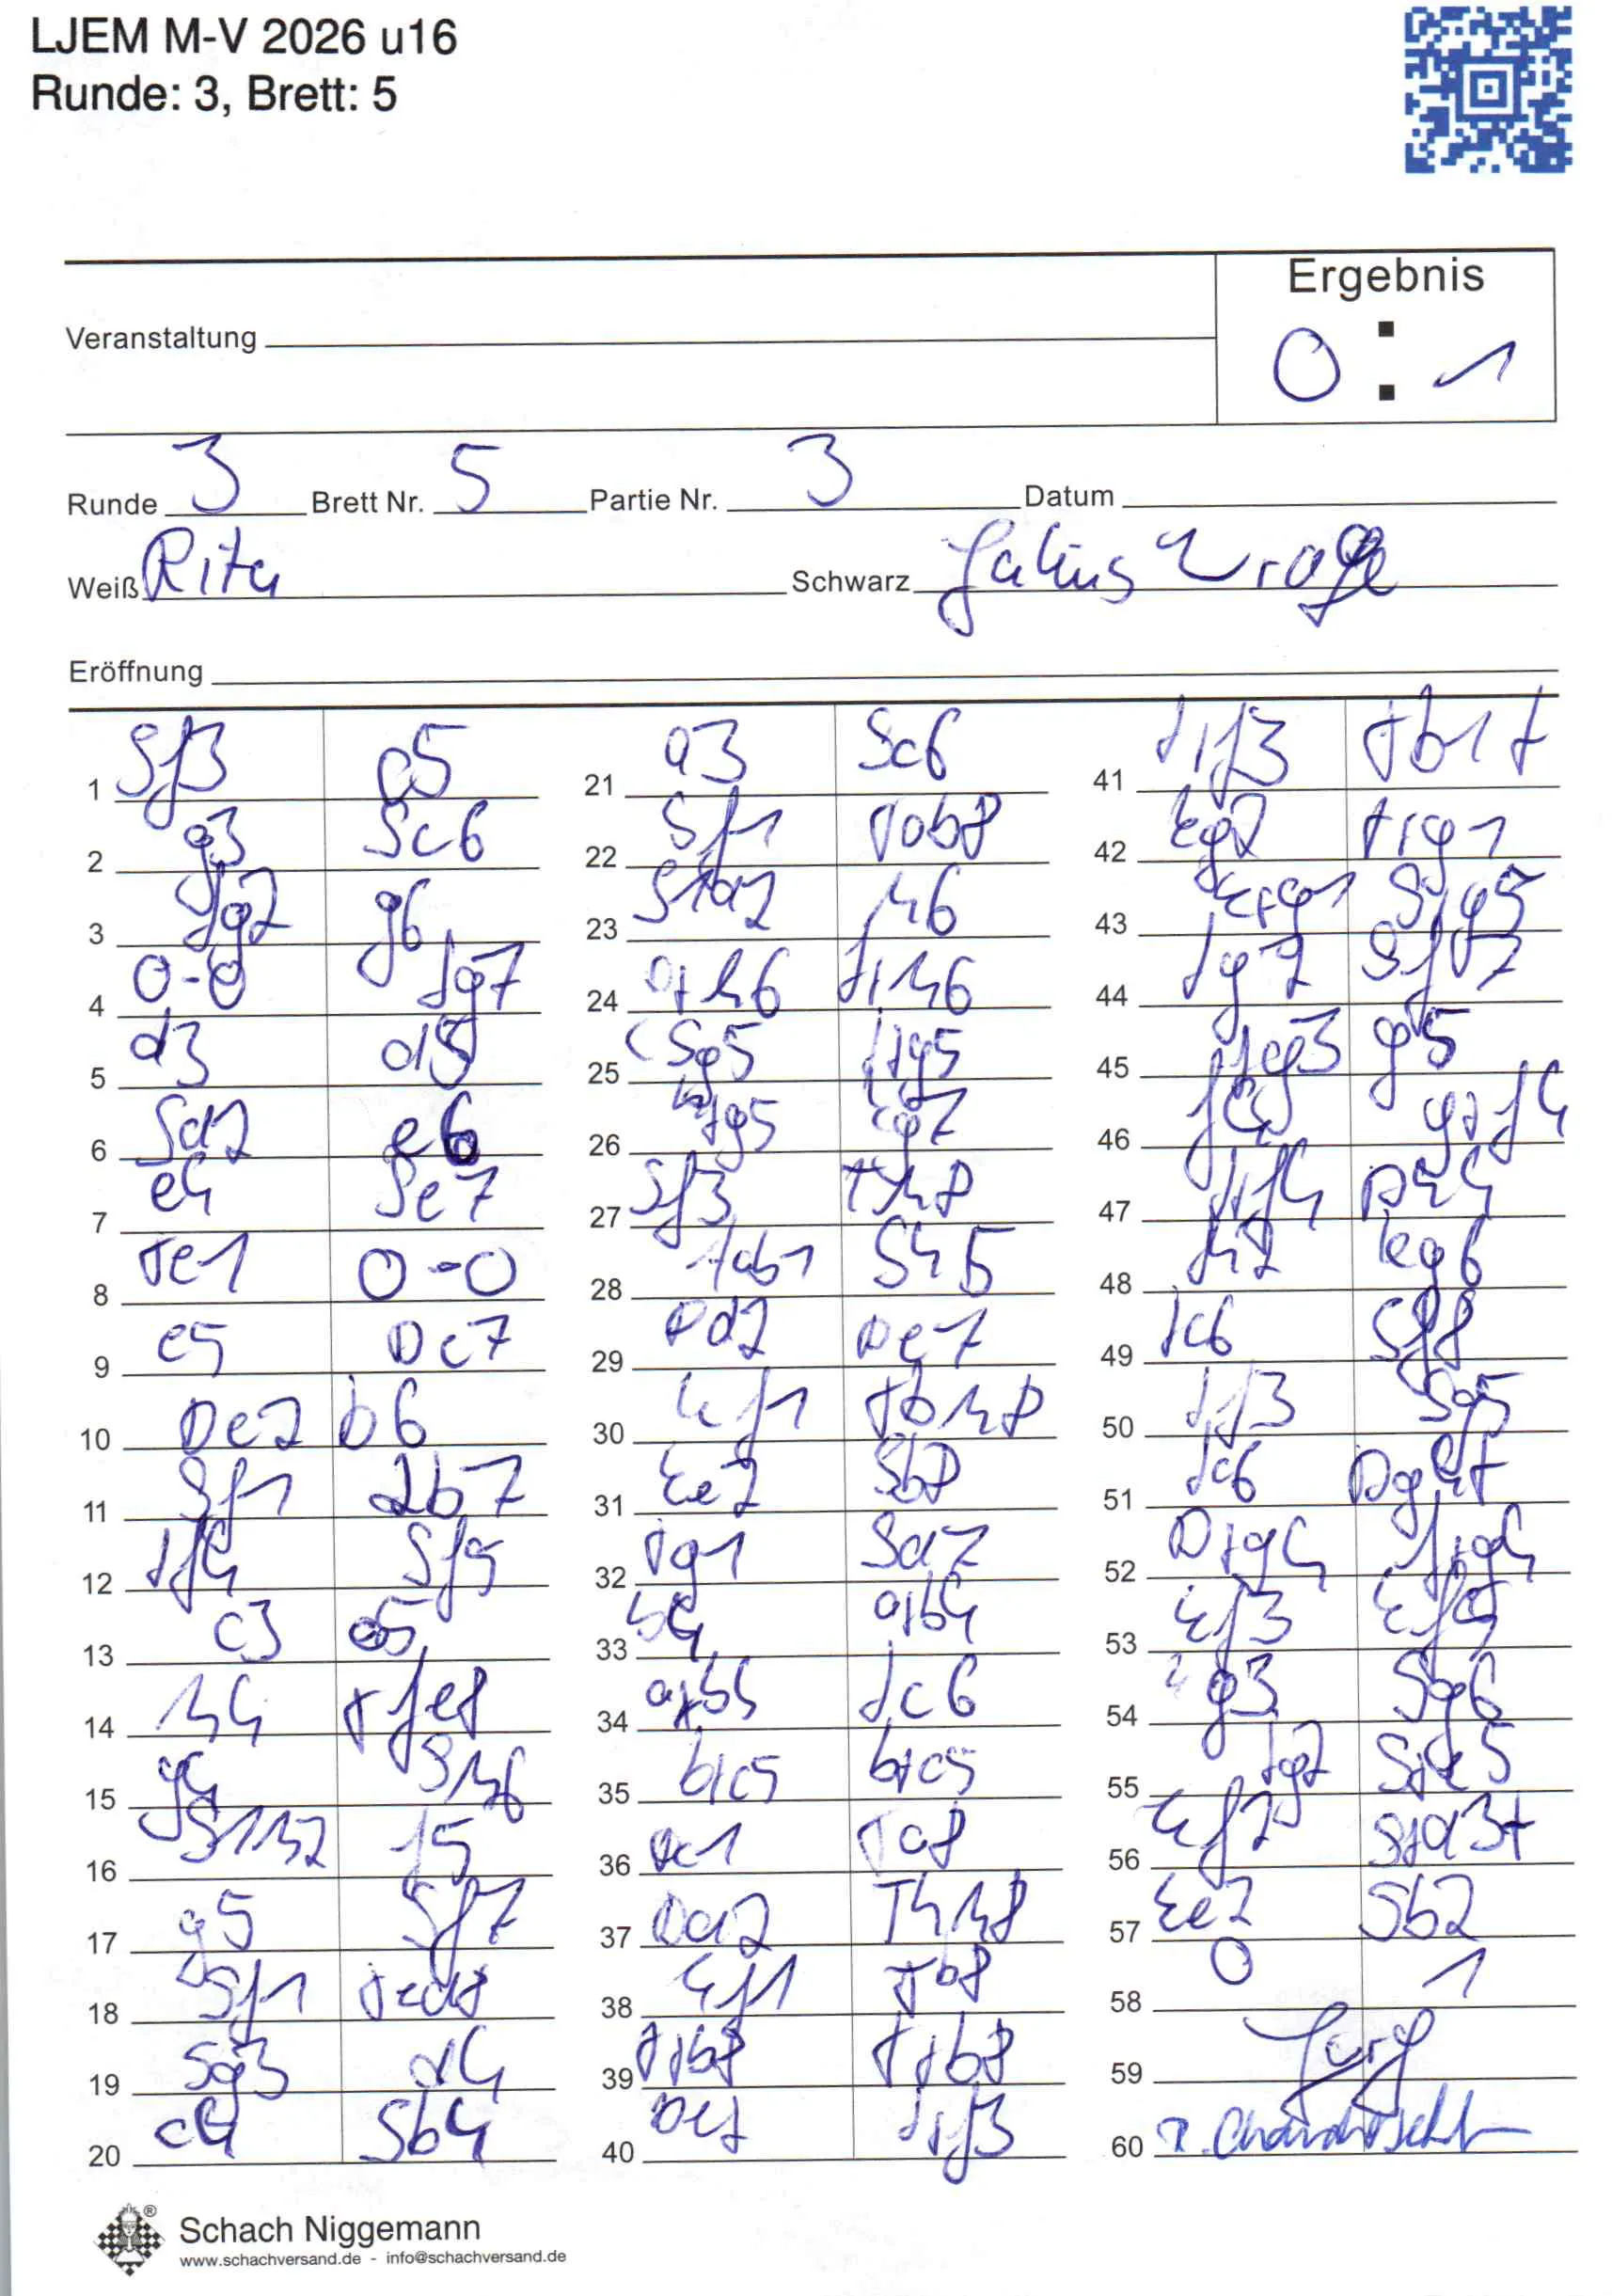 LJEM M-V 2026 u16
Runde: 3, Brett: 5
Ergebnis
Veranstaltung
0 : 1
Runde 3 Brett Nr. 5 Partie Nr. 3 Datum
Weiß Rita Schwarz Julius
Eröffnung
1 Sf3 c5
2 g3 Sc6
3 Lg2 g6
4 0-0 Lg7
5 d3 d5
6 Sd2 e6
7 e4 Se7
8 Te1 0-0
9 e5 Dc7
10 De2 b6
11 Sf1 Lb7
12 Lf4 Sf5
13 c3 a5
14 h4 Tfe8
15 g4 Sh6
16 S1h2 f5
17 g5 Sf7
18 Sf1 Ted8
19 Sg3 d4
20 c4 Sb4
21 a3 Sc6
22 Sf1 Tab8
23 S1d2 h6
24 gxh6 Lxh6
25 Sg5 Lxg5
26 Lxg5 Kg7
27 Sf3 Th8
28 Tab1 Sh5
29 Dd2 De7
30 Kf1 Tbh8
31 Ke2 Sb8
32 Tg1 Sd7
33 b4 axb4
34 axb4 Lc6
35 bxc5 bxc5
36 Dc1 Ta8
37 Da2 Thh8
38 Kf1 Tb8
39 Txb8 Txb8
40 Lxf3
41 Lxf3 Tb1+
42 Kg2 Txg1
43 Kxg1 Sxg5
44 Lg2 Sf7
45 g5
46 f4 gxf4
47 Lxf4 Dh4
48 Kg6
49 Lc6 Sf8
50 Lf3 Sg5
51 Lc6 Dg4+
52 Dxg4 fxg4
53 Kf3 Kf5
54 g3 Sg6
55 Lg2 Sxe5
56 Kf2 Sxd3+
57 Ke2 Sb2
58 0 1
59
60
Schach Niggemann
www.schachversand.de - info@schachversand.de